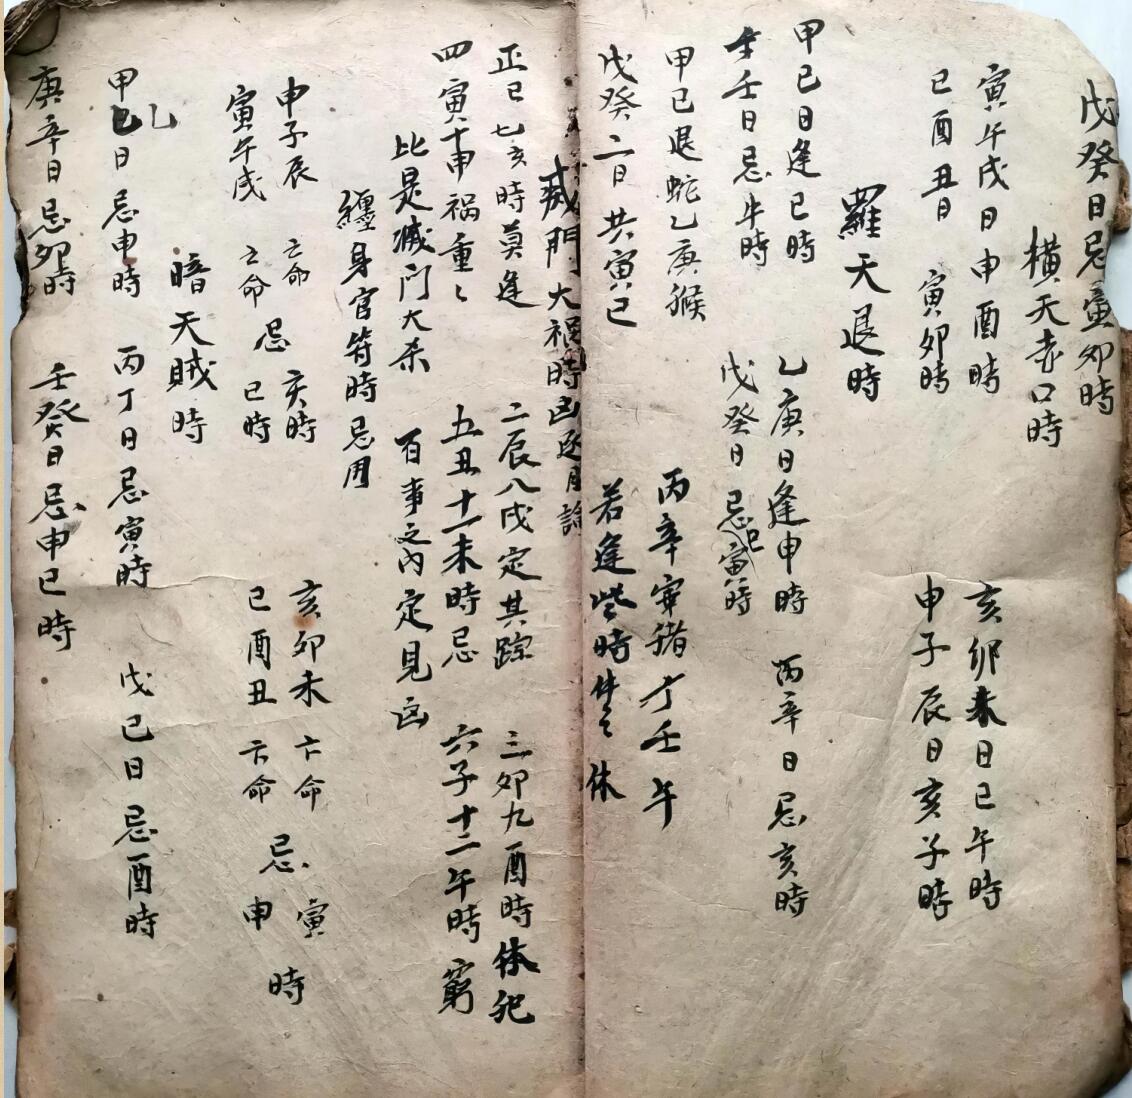 戊癸日忌蛋卯時
橫天赤口時
寅午戌日申酉時 亥卯未日巳午時
巳酉丑日 寅卯時 申子辰日亥子時
羅天退時
甲己日逢巳時 乙庚日逢申時 丙辛日忌亥時
壬日忌午時 戊癸日忌巳時
甲己退蛇乙庚猴 丙辛寅猪丁壬午
戊癸二日共寅巳 若逢些時件〻休
滅門大禍時凶逐月論
正巳七亥時莫逢 二辰八戌定其踪 三卯九酉時休犯
四寅十申祸重〻 五丑十一未時忌 六子十二午時窮
比是滅门大杀 百事之内定見凶
纏身官符時忌用
申子辰亡命 忌 亥時 亥卯未亡命 忌 寅時
寅午戌亡命 巳時 巳酉丑亡命 申
暗天贼時
甲乙日忌申時 丙丁日忌寅時 戊己日忌酉時
庚辛日忌卯時 壬癸日忌申巳時